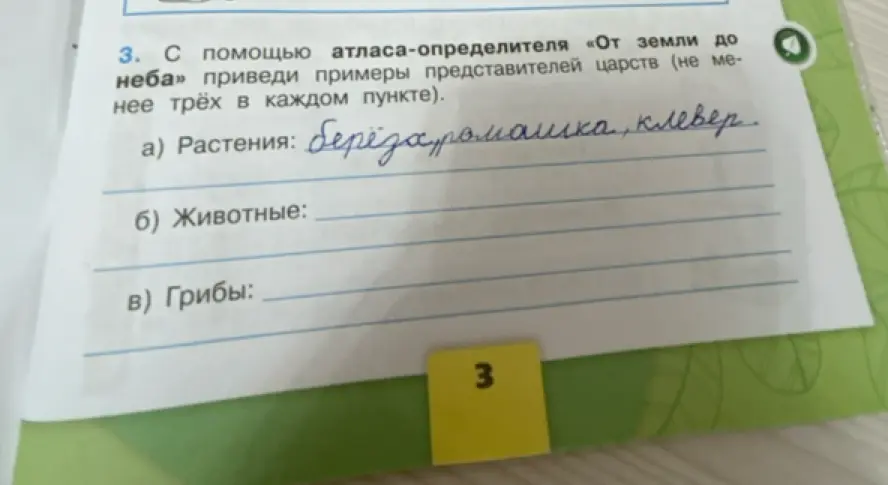 3. С помощью атласа-определителя «От земли до
неба» приведи примеры представителей царств (не ме-
нее трёх в каждом пункте).
а) Растения: берёза, ромашка, клевер.
б) Животные:
в) Грибы:
3